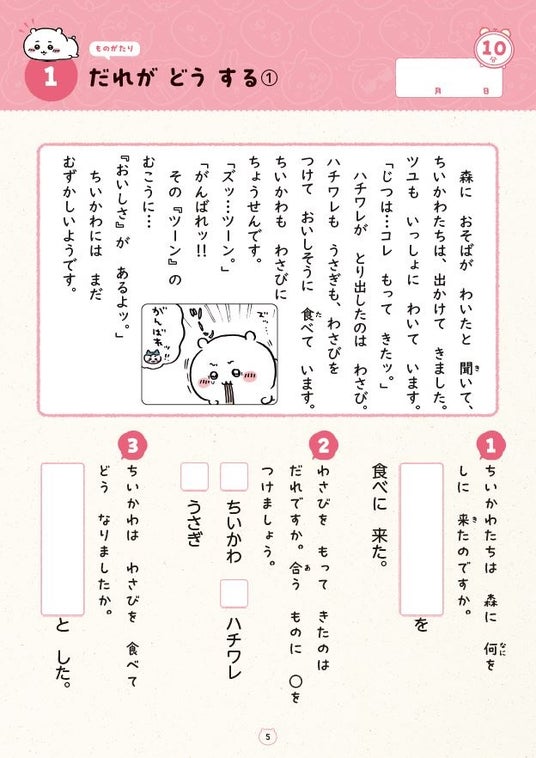 ものがたり
1
だれが どう する①
10
分
月 日
森に おそばが わいたと 聞いて、
き
ちいかわたちは、出かけて きました。
ツユも いっしょに わいて います。
「じつは…コレ もって きたッ。」
ハチワレが とり出したのは わさび。
ハチワレも うさぎも、わさびを
つけて おいしそうに 食べて います。
た
ちいかわも わさびに
ちょうせんです。
「ズッ…ツーン。」
「がんばれッ!!
その『ツーン』の
むこうに…
『おいしさ』が あるよッ。」
ちいかわには まだ
むずかしいようです。
ズ…
ツーン
がんばれッ!!
1
ちいかわたちは 森に 何を
なに
しに 来たのですか。
き
を
食べに 来た。
2
わさびを もって きたのは
だれですか。合う ものに ○を
あ
つけましょう。
ちいかわ
ハチワレ
うさぎ
3
ちいかわは わさびを 食べて
どう なりましたか。
と した。
5